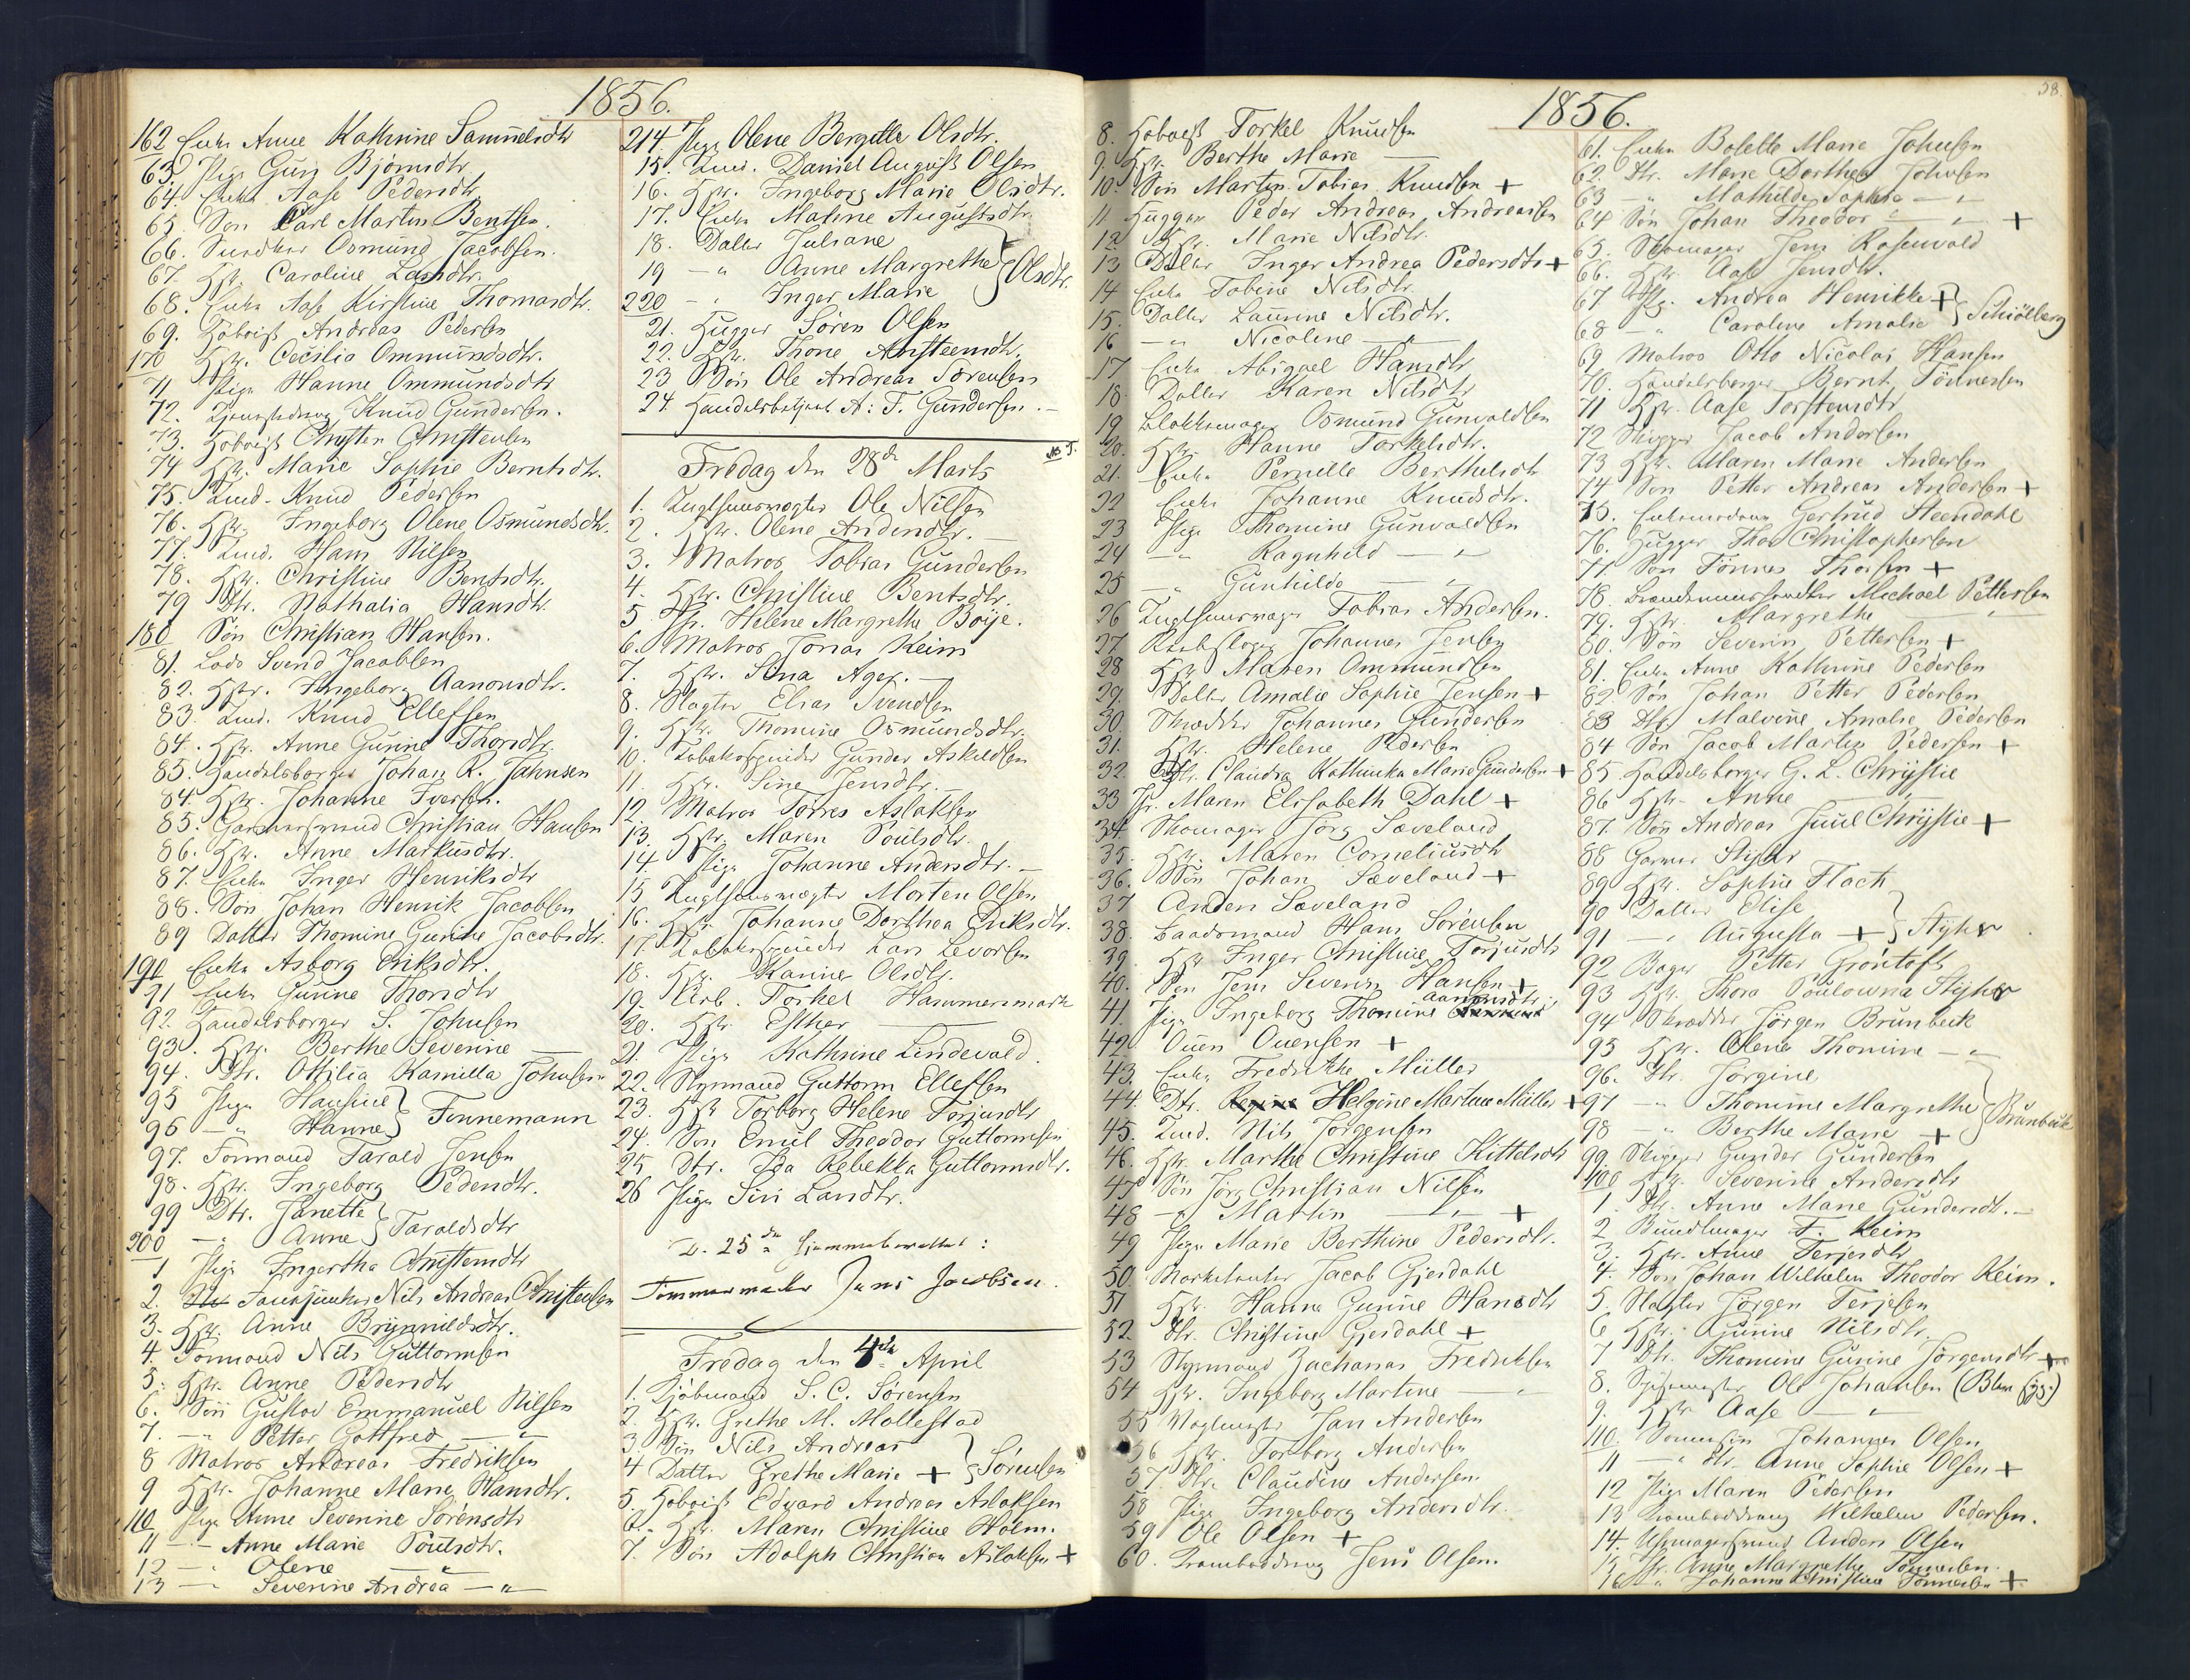 1856.
162 Enke Anne Kathrine Samuelsdtr
63 Pige Guri Bjørnsdtr
64. Enke Aase Pedersdtr
65. Søn Carl Martin Bentsen.
66. Osmund Jacobsen.
67. Hstr. Caroline Larsdtr.
68. Enke Aase Kirstine Thomasdtr.
69. Hoboist Andreas Pedersen
170 Hstr. Cecilia Ommundsdtr.
71 Pige Hanne Ommundsdtr
72. Knud Gundersen.
73. Hoboist Christen Christensen
74 Hstr. Marie Sophie Berntsdtr.
75. Lmd. Knud Pedersen
76. Hstr. Ingeborg Olene Osmundsdtr.
77. Lmd. Hans Nilsen
78. Hstr. Christine Bentsdtr.
79 Dtr. Nathalia Hansdtr.
180 Søn Christian Hansen.
81. Lods Svend Jacobsen
82. Hstr. Ingeborg Aanonsdtr.
83. Lmd. Knud Ellefsen
84. Hstr. Anne Gurine Thorsdtr.
85. Handelsborger Johan R. Jahnsen
84. Hstr. Johanne Iversen.
85. Garversvend Christian Hansen
86. Hstr. Anne Markusdtr.
87. Enke Inger Henriksdtr
88. Søn Johan Henrik Jacobsen
89 Datter Thomine Gurine Jacobsdtr.
190 Enke Asborg Eriksdtr.
91 Enke Gurine Thorsdtr
92. Handelsborger S. Johnsen
93. Hstr. Berthe Severine —
94. Dtr. Otilia Kamilla Johnsen
95 Pige Hansine } Tønnemann
96 — " Hanne
97. Formand Tarald Jensen
98. Hstr. Ingeborg Pedersdtr.
99 Dtr. Janette } Taraldsdtr
200 — " Anne
1 Pige Ingertha Christensdtr
2. Nils Andreas Christensen
3. Hstr. Anne Brynnildsdtr.
4. Formand Nils Guttormsen
5. Hstr. Anne Pedersdtr
6. Søn Gustav Emmanuel Nilsen
7. — " Petter Gottfred — "
8 Matros Andreas Fredriksen
9 Hstr. Johanne Marie Hansdtr.
110 Pige Anne Severine Sørensdtr
11 — " Anne Marie Poulsdtr.
12 — " Olene — "
13 — " Severine Andrea — "
214. Pige Olene Bergitte Olsdtr.
15. Lmd. Daniel August Olsen
16. Hstr. Ingeborg Marie Olsdtr.
17. Enke Malene Augustsdtr
18. Datter Juliane
19 — " Anne Margrethe } Olsdtr.
220 — " Inger Marie
21. Hugger Søren Olsen
22. Hstr. Thone Ansteensdtr.
23 Søn Ole Andreas Sørensen
24. Handelsbetjent A: T. Gundersen. —
Fredag den 28de Marts
1. Tugthuusvogter Ole Nilsen
2. Hstr. Olene Andersdtr. —
3. Matros Tobias Gundersen
4. Hstr. Christine Bentsdtr.
5. Jfr. Helene Margrethe Boije.
6. Matros Jonas Keim
7. Hstr. Sina Ager. —
8. Slagter Elias Svendsen
9. Hstr. Thomine Osmundsdtr.
10. Tobaksspinder Gunder Askildsen
11. Hstr. Sine Jensdtr. —
12. Matros Torres Aslaksen
13. Hstr. Maren Poulsdtr.
14. Pige Johanne Andersdtr. —
15 Tugthuusvogter Morten Olsen
16. Hstr. Johanne Dorthea Eriksdtr.
17 Tobaksspinder Lars Levorsen
18. Hstr. Karine Olsdtr.
19. Arb. Torkel Hammersmark
20. Hstr. Esther —
21. Pige Kathrine Lindevald.
22. Styrmand Guttorm Ellefsen
23. Hstr Torborg Helene Torjusdtr
24. Søn Emil Theodor Guttormsen
25 Dtr. Ida Rebekka Guttormsdtr.
26 Pige Siri Larsdtr.
D. 25de Hjemmeberettet:
Tømmermand Jens Jacobsen.
Fredag den 4de April
1. Kjøbmand S. C. Sørensen
2. Hstr. Grethe M. Mollestad
3. Søn Nils Andreas } Sørensen
4 Datter Grethe Marie +
5. Hoboist Edvard Andreas Aslaksen
6. Hstr. Maren Christine Holm.
7. Søn Adolph Christian Aslaksen +
58.
1856.
8. Hoboist Torkel Knudsen
9. Hstr. Berthe Marie —
10. Søn Martin Tobias Knudsen +
11 Hugger Peder Andreas Andreassen
12 Hstr. Marie Nilsdtr.
13 Datter Inger Andrea Pedersdtr +
14 Enke Tobine Nilsdtr.
15. Datter Laurine Nilsdtr.
16 — " Nicoline —
17 Enke Abigael Hansdtr
18. Datter Karen Nilsdtr
19 Blokkemager Osmund Gunvaldsen
20. Hstr. Hanne Torkelsdtr.
21. Enke Pernille Berthelsdtr
22 Enke Johanne Knudsdtr.
23 Pige Thomine Gunvaldsen
24 — " Ragnhild — "
25 — " Gunhilde — "
26 Tugthuusvogter Tobias Andersen.
27 Rebslager Johannes Jensen
28 Hstr Maren Ommundsen
29. Datter Amalie Sophie Jensen +
30. Skrædder Johannes Gundersen
31. Hstr. Helene Pedersen
32. Dtr. Claudia Kathinka Marie Gundersen +
33 Jfr. Maren Elisabeth Dahl +
34. Skomager Jørg Sæveland
35. Hstr. Maren Corneliusdtr
36. Søn Johan Sæveland +
37 Anden Sæveland
38. Baadsmand Hans Sørensen
39. Hstr Inger Christine Torjusdtr
40. Søn Jens Severin Hansen +
41. Pige Ingeborg Thomine Aanensdtr.
42. Ouen Ouensen +
43. Enke Fredrikke Müller
44. Dtr. Helgine Martine Müller +
45. Lmd. Nils Jørgensen
46. Hstr. Marthe Christine Kittelsdtr
47 Søn Jørg Christian Nilsen
48 — " Martin — " +
49 Pige Marie Berthine Pedersdtr.
50. Jacob Gjerdahl
51 Hstr. Hanna Gurine Hansdtr
52 Dtr. Christine Gjerdahl +
53 Styrmand Zacharias Fredriksen
54 Hstr. Ingeborg Martine — "
55 Jan Andersen
56 Hstr. Torborg Andersen
57. Dtr. Claudine Andersen.
58 Pige Ingeborg Andersdtr.
59 Ole Olsen +
60. Jens Olsen.
61. Enke Bolette Marie Johnsen
62. Dtr. Marie Dorthea Johnsen
63 — " Mathilde Sophie — "
64 Søn Johan Theodor — " +
65. Skomager Jens Rosenvold
66. Hstr Aase Jensdtr.
67 Pig. Andrea Henrikke + } Schiølberg
68 — " Caroline Amalie
69 Matros Otto Nicolai Hansen
70. Handelsborger Bernt Tønnesen
71 Hstr. Aase Torstensdtr
72 Skipper Jacob Andersen
73 Hstr. Maren Marie Andersen
74 Søn Petter Andreas Andersen +
75. Gertrud Steendahl
76. Hugger Thor Christophersen
77 Søn Tønnes Thorsen +
78. Michael Pettersen
79. Hstr. Margrethe — "
80. Søn Severin Pettersen +
81. Enke Anne Kathrine Pedersen
82 Søn Johan Petter Pedersen
83 Dtr. Malvine Amalie Pedersen
84 Søn Jacob Martin Pedersen +
85. Handelsborger G. L. Chrystie
86 Hstr. Anne — "
87. Søn Andreas Juul Chrystie +
88 Garver Styhr
89 Hstr. Sophie Flach
90 Datter Elise
91 — " Augusta + } Styhr
92 Bager Petter Grøntoft
93 Hstr. Thora Poulowna Styhr
94 Skrædder Jørgen Brunbeck
95 Hstr. Olene Thomine — "
96. Dtr. Jørgine
97 — " Thomine Margrethe } Brunbeck
98 — " Berthe Marie +
99 Skipper Gunder Gundersen
100 Hstr. Severine Andersdtr
1. Dtr. Anne Marie Gundersdtr. —
2 Bundtmager F. Keim
3. Hstr. Anne Terjesdtr
4. Søn Johan Wilhelm Theodor Keim.
5. Slagter Jørgen Terjesen
6 Hstr. Gurine Nilsdtr.
7 Dtr. Thomine Gurine Jørgensdtr +
8. Ole Johansen
9. Hstr Aase — "
110. Johannes Olsen
11 — " Dtr. Anne Sophie Olsen +
12 Pige Maren Pedersen
13 Wilhelm Pedersen.
14. Uhrmagersvend Anders Olsen
15 Jfr. Anne Margrethe Tønnesen.
16 — " Johanne Christine Tønnesen +